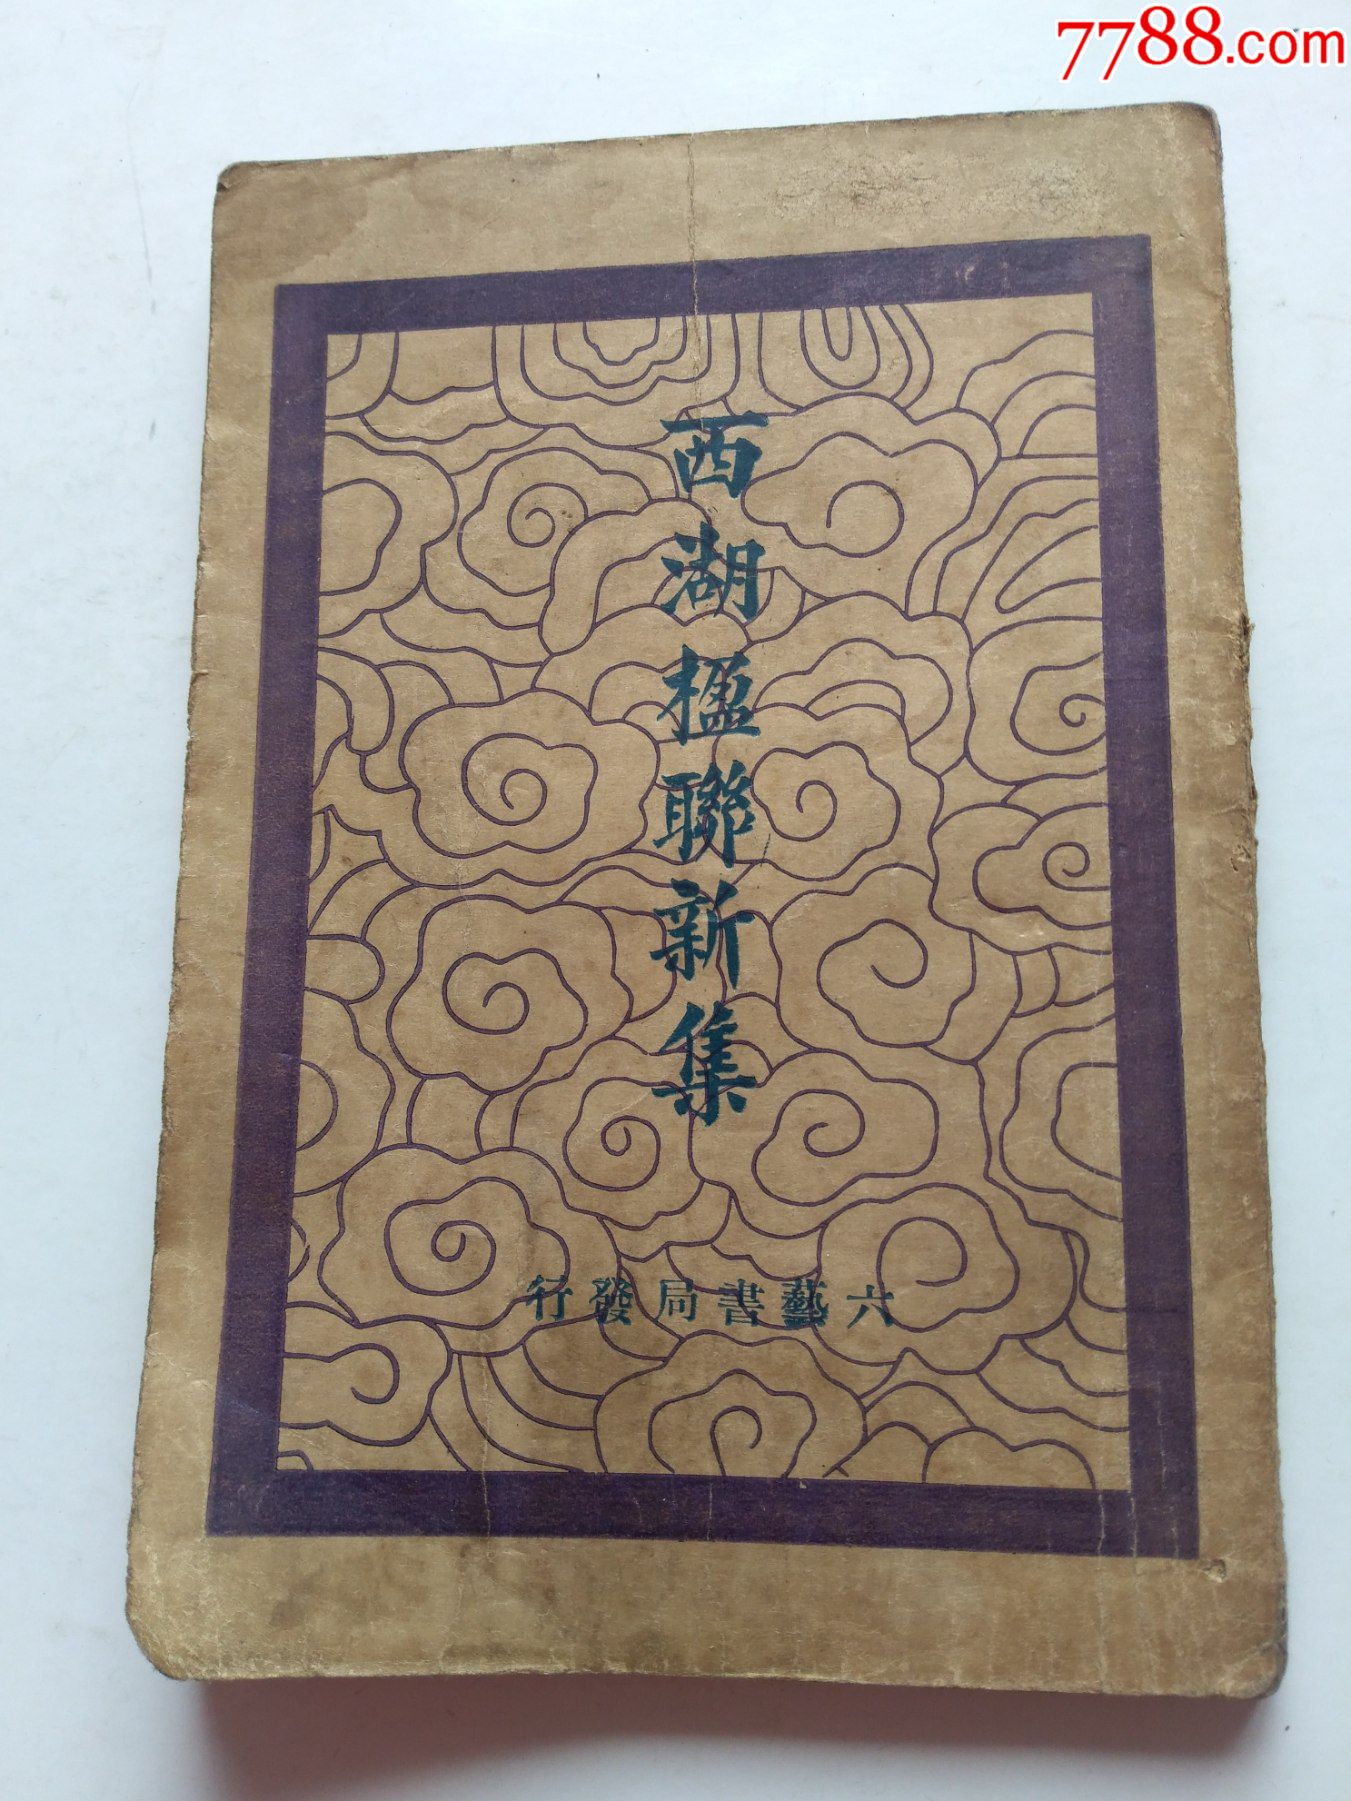 7788.com
西湖楹聯新集
六藝書局發行